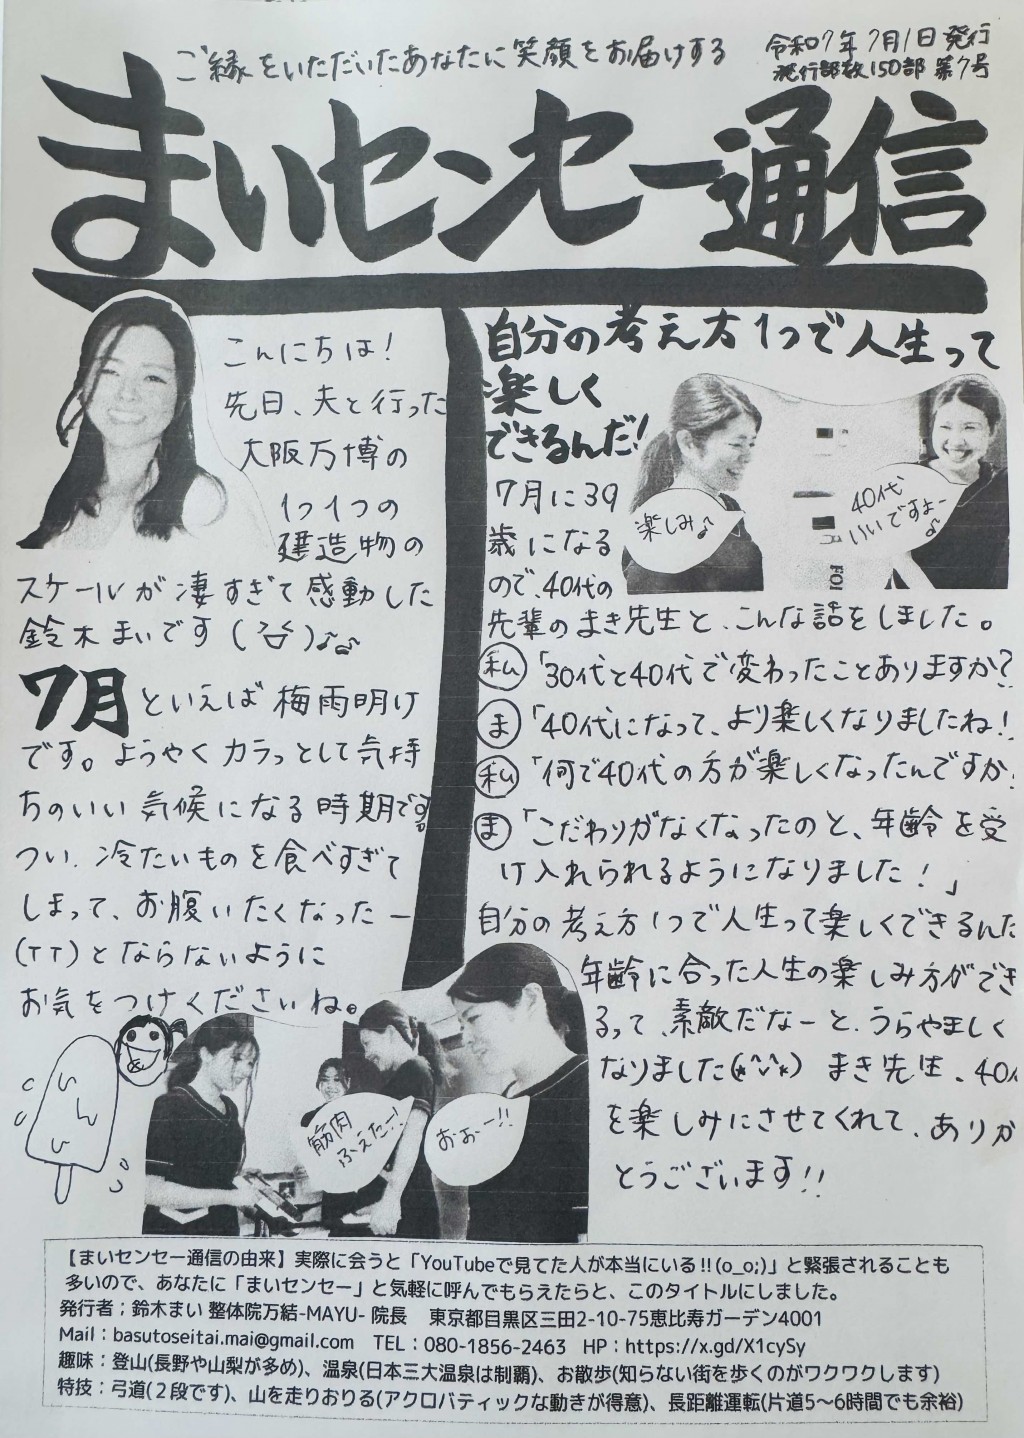 ご縁をいただいたあなたに笑顔をお届けする
令和7年7月1日発行
発行部数150部 第7号
まいセンセー通信
こんにちは!
先日、夫と行った
大阪万博の
1つ1つの
建造物の
スケールが凄すぎて感動した
鈴木まいです
7月といえば梅雨明け
です。ようやくカラっとして気持
ちのいい気候になる時期です
つい、冷たいものを食べすぎて
しまって、お腹いたくなったー
(TT)とならないように
お気をつけくださいね。
い
ん
い
筋肉
ふえたー!!
おぉー!!
自分の考え方1つで人生って
楽しく
できるんだ!
楽しみ♪
40代
いいですよー♪
7月に39
歳になる
ので、40代の
先輩のまき先生と、こんな話をしました。
私「30代と40代で変わったことありますか?
ま「40代になって、より楽しくなりましたね!
私「何で40代の方が楽しくなったんですか
ま「こだわりがなくなったのと、年齢を受
け入れられるようになりました!」
自分の考え方1つで人生って楽しくできるんだ
年齢に合った人生の楽しみ方ができ
るって、素敵だなーと、うらやましく
なりました(*^v^*) まき先生、40代
を楽しみにさせてくれて、ありが
とうございます!!
【まいセンセー通信の由来】実際に会うと「YouTubeで見てた人が本当にいる!!(o_o;)」と緊張されることも
多いので、あなたに「まいセンセー」と気軽に呼んでもらえたらと、このタイトルにしました。
発行者;鈴木まい 整体院万結-MAYU- 院長 東京都目黒区三田2-10-75恵比寿ガーデン4001
Mail:basutoseitai.mai@gmail.com TEL:080-1856-2463 HP:https://x.gd/X1cySy
趣味:登山(長野や山梨が多め)、温泉(日本三大温泉は制覇)、お散歩(知らない街を歩くのがワクワクします)
特技:弓道(2段です)、山を走りおりる(アクロバティックな動きが得意)、長距離運転(片道5〜6時間でも余裕)